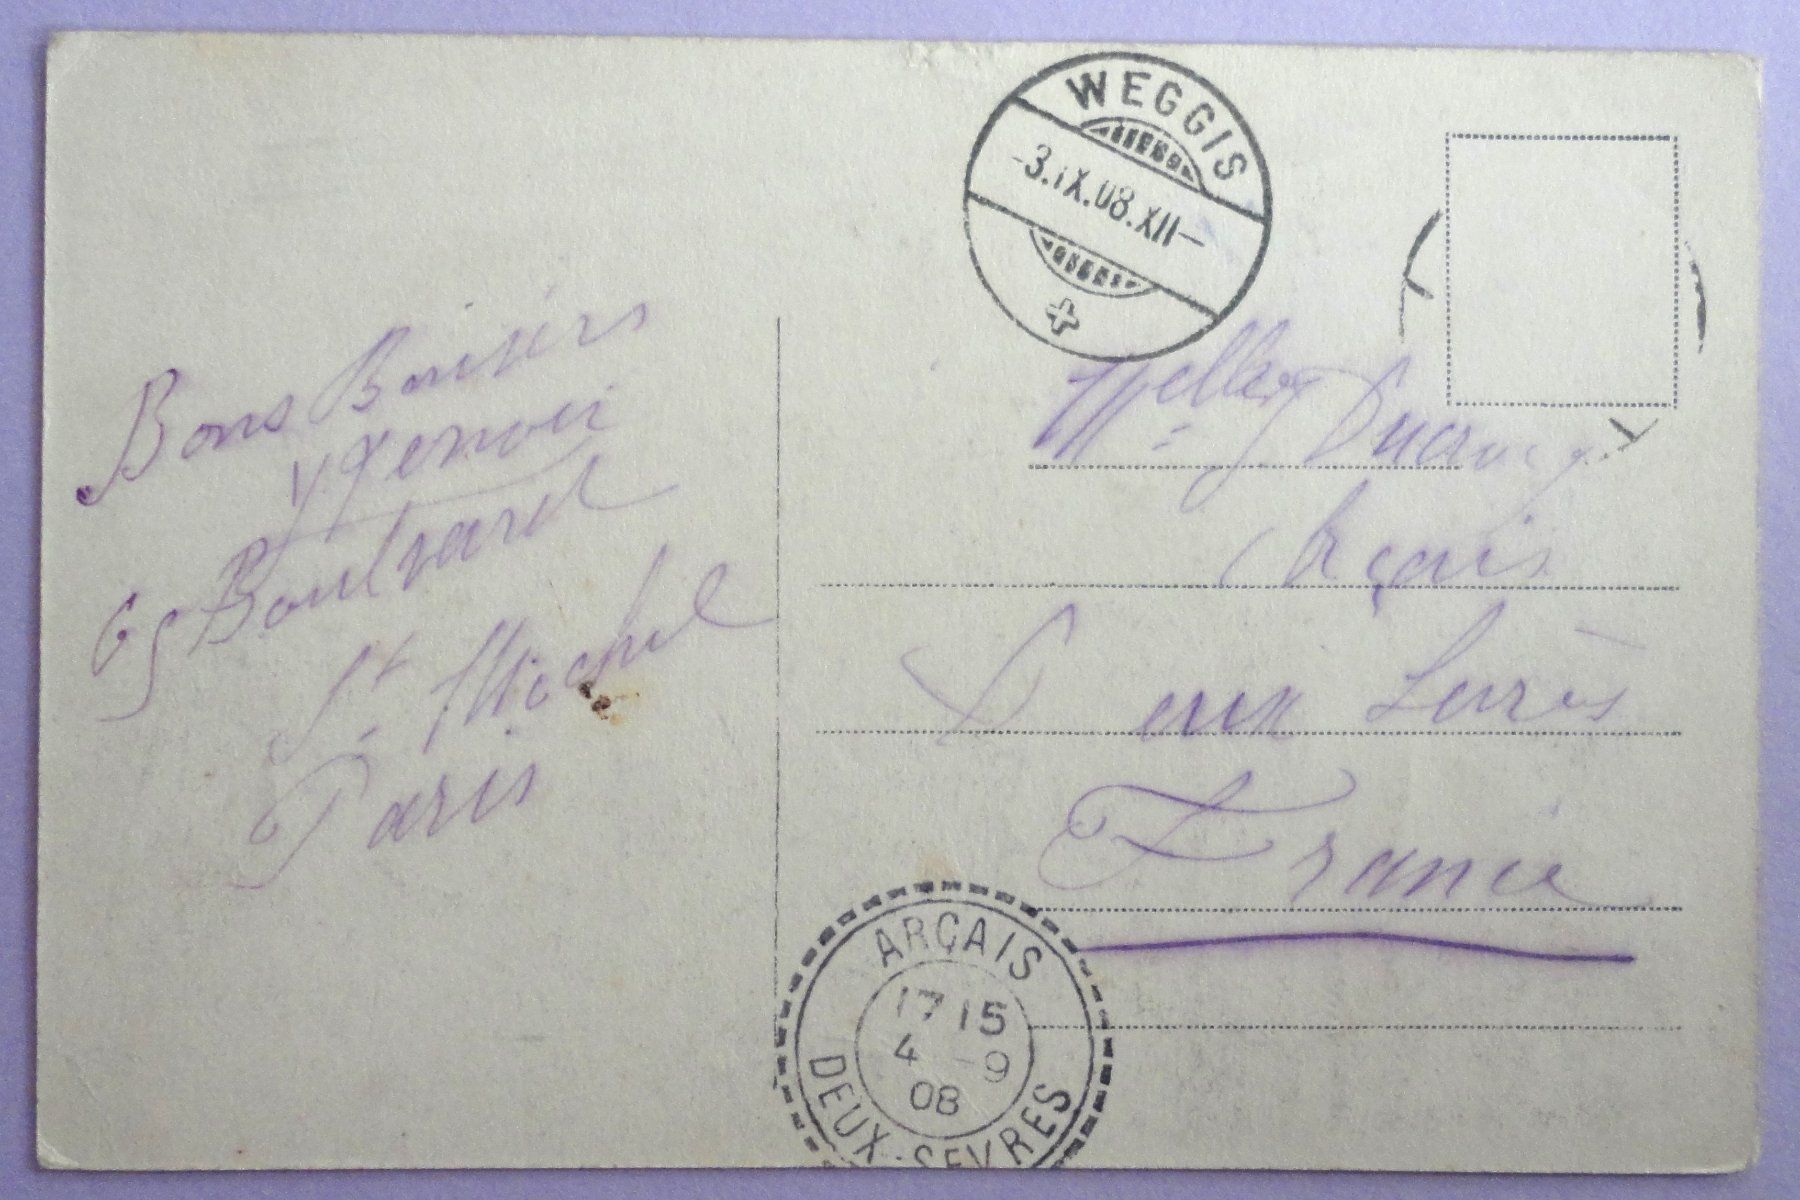 WEGGIS
-3.IX.08.XII-
Bons Baisers
65 Boulvard
St. Michel
Paris
Melle
Arçais
Deux Sèvres
France
ARÇAIS
17 15
4 -9
08
DEUX-SEVRES